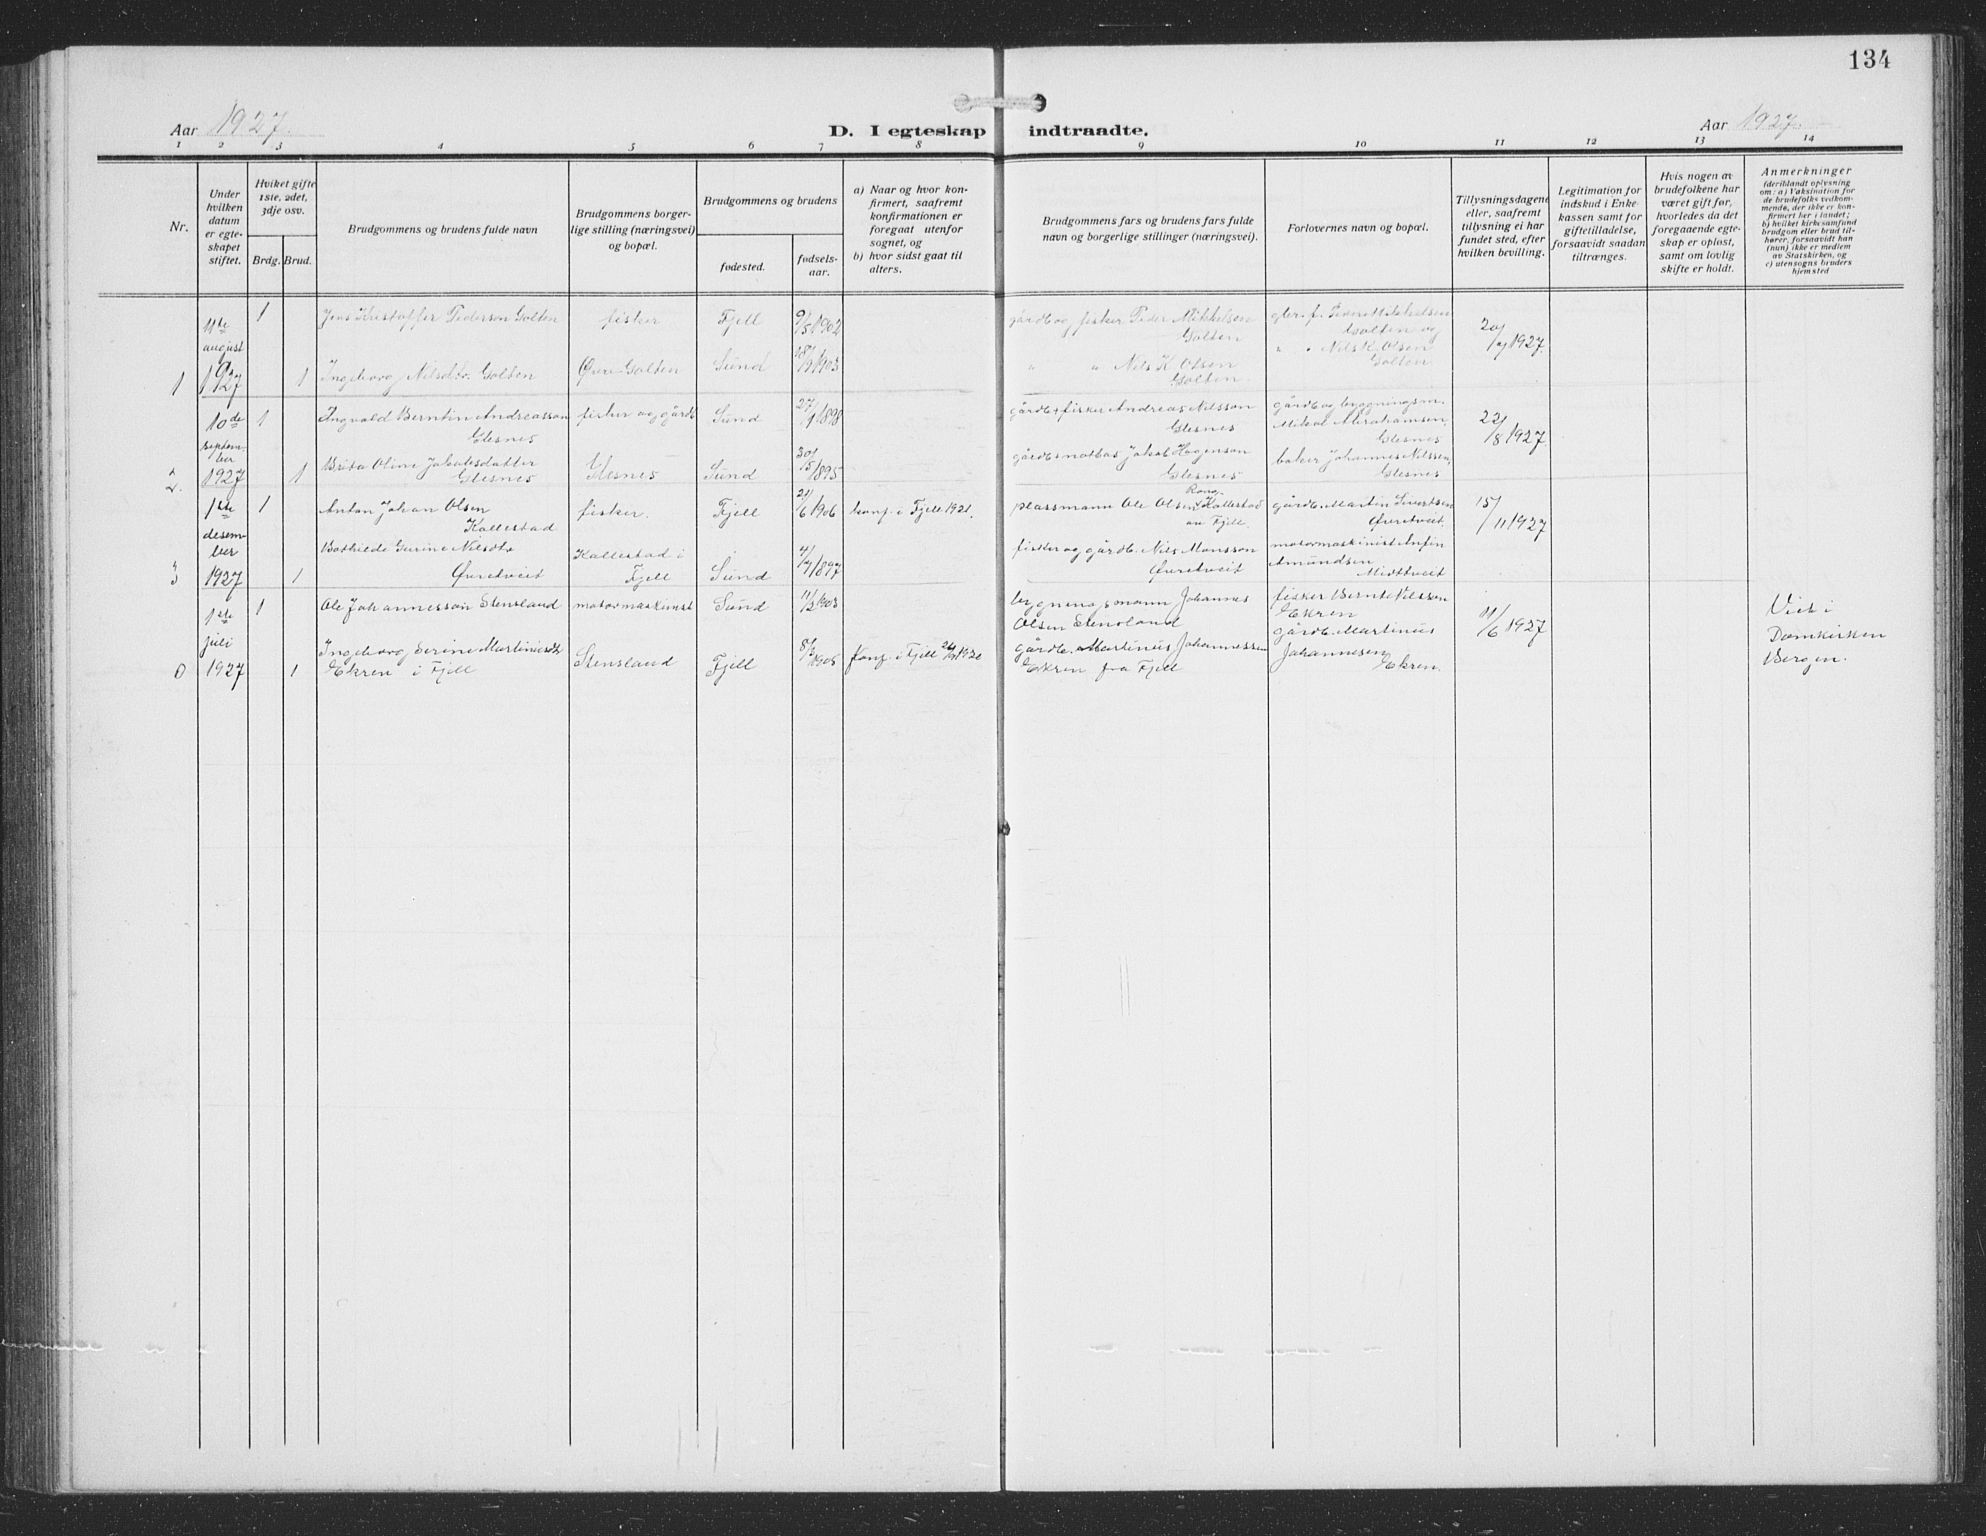 134
Aar 1927.
D. I egteskap indtraadte.
Aar 1927.
1 2 3 4 5 6 7 8 9 10 11 12 13 14
Nr.
Under hvilken datum er egteskapet stiftet.
Hviket gifte 1ste, 2det, 3dje osv.
Brdg. Brud.
Brudgommens og brudens fulde navn
Brudgommens borgerlige stilling (næringsvei) og bopæl.
Brudgommens og brudens
fødested.
fødselsaar.
a) Naar og hvor konfirmert, saafremt konfirmationen er foregaat utenfor sognet, og
b) hvor sidst gaat til alters.
Brudgommens fars og brudens fars fulde navn og borgerlige stillinger (næringsvei).
Forlovernes navn og bopæl.
Tillysningsdagene eller, saafremt tillysning ei har fundet sted, efter hvilken bevilling.
Legitimation for indskud i Enkekassen samt for giftetilladelse, forsaavidt saadan tiltrænges.
Hvis nogen av brudefolkene har været gift før, hvorledes da det foregaaende egteskap er opløst, samt om lovlig skifte er holdt.
Anmerkninger
(deriblandt oplysning om: a) Vaksination for de brudefolks vedkommende, der ikke er konfirmert her i landet; b) hvilket kirkesamfund brudgom eller brud tilhører, forsaavidt han (hun) ikke er medlem av Statskirken, og c) utensogns bruders hjemsted
1
11te august 1927
1
Jens Kristoffer Pederson Golten
fisker
Fjell
9/5 1902
gårdb og fisker Peder Mikkelsen Golten
gbr. f. Peder Mikkelsen Golten og
20/7 1927.
1
Ingeborg Nilsdtr. Golten
Øvre Golten
Sund
18/9 1903
" " Nils K Olsen Golten.
" " Nils K. Olsen Golten
2.
10de september 1927
1
Ingvald Berntin Andreasson Glesnes
fisker og gårdb
Sund
27/9 1898
gårdb + fisker Andreas Nilsson Glesnes
gårdb og bygningsm. Mikal Abrahamsen, Glesnes
22/8 1927
1
Brita Oline Jakobsdatter Glesnes
Glesnes
Sund
30/5 1895
gårdb notbas Jakob Hagenson Glesnes
baker Johannes Nilssen, Glesnes
3
1ste desember 1927
1
Anton Johan Olsen Kallestad
fisker.
Fjell
21/6 1906
konf. i Fjell 1921.
plassmann Ole Olsen Rong, Kallestad av Fjell.
gårdb. Martin Sivertsen Øvretveit.
15/11 1927
1
Bothilde Gurine Nilsdtr Øvretveit
Kallestad i Fjell
Sund
4/7 1897
fisker og gårdb. Nils Monsson Øvretveit
motormaskinist Anfin Amundsen Midttveit
0
1ste juli 1927
1
Ole Johannesson Stensland
motormaskinist
Sund
11/2 1903
bygningsmann Johannes Olsen Stensland
fisker Bernt Nilsson Ekren
11/6 1927
Viet i Domkirken Bergen.
1
Ingeborg Serine Martinusdtr Ekren i Fjell
Stensland
Fjell
8/2 1905
Konf. i Fjell 26/9 1920
gårdb. Martinus Johannessen Ekren fra Fjell
gårdb. Martinus Johannesen Ekren.